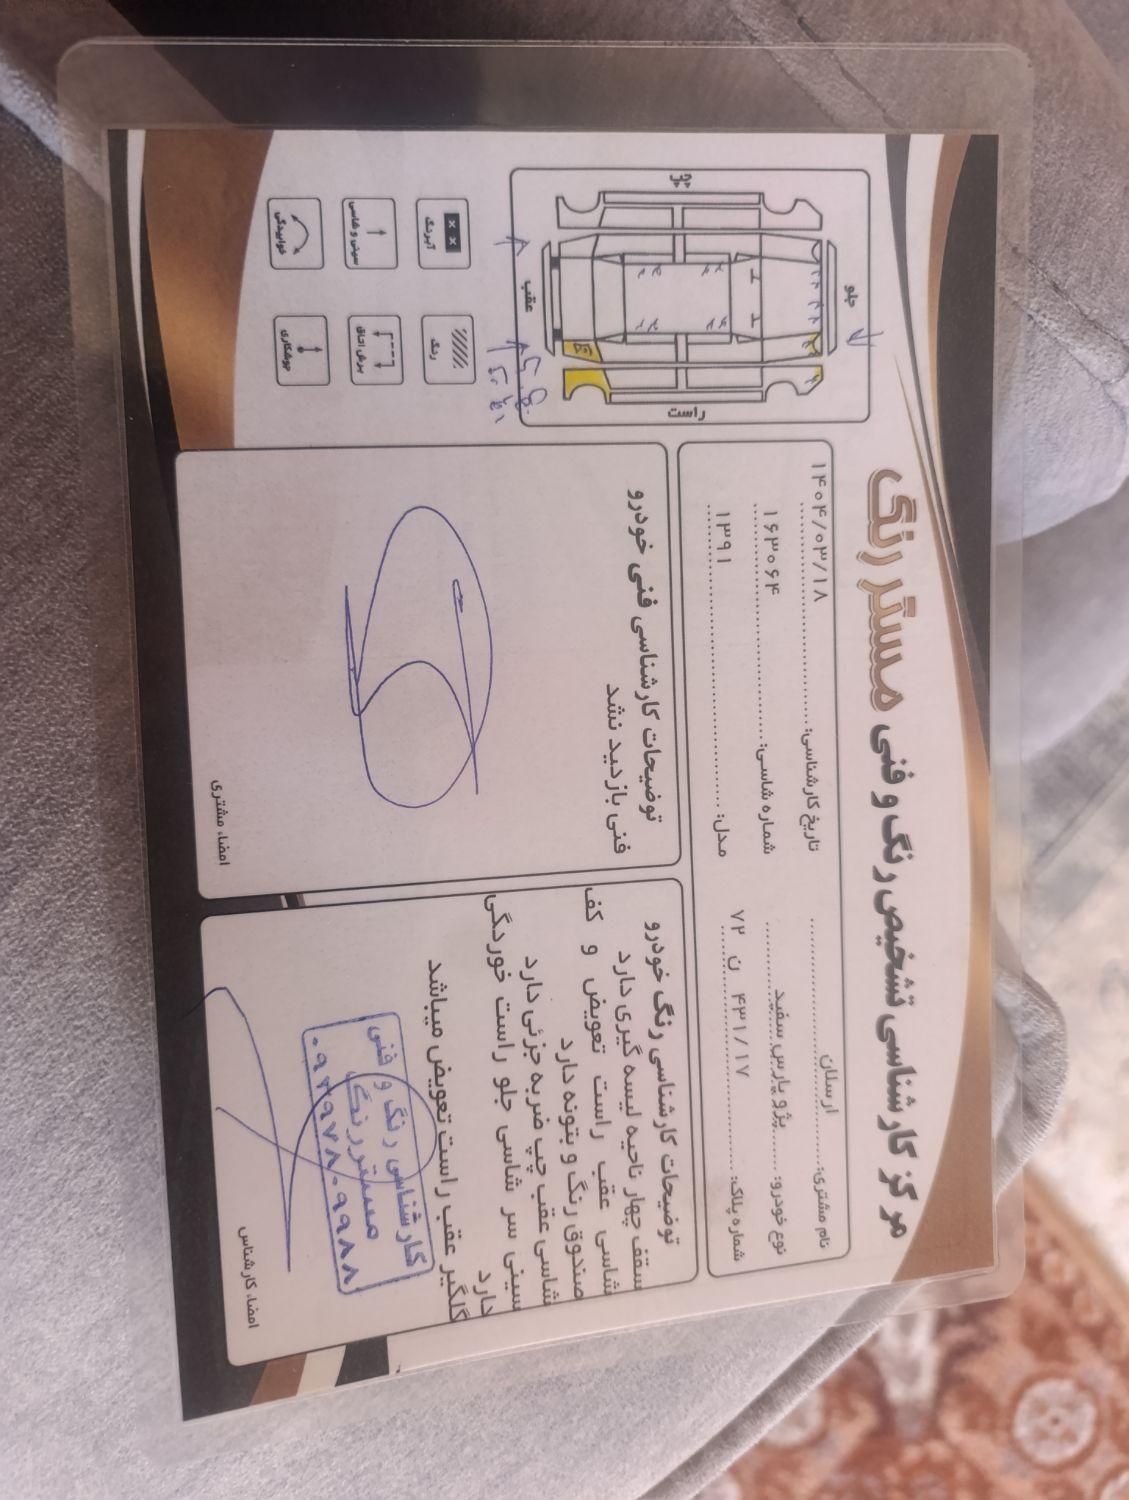 مرکز کارشناسی تشخیص رنگ و فنی مستر رنگ
نام مشتری: ارسلان
تاریخ کارشناسی: ۱۴۰۴/۰۳/۱۸
نوع خودرو: پژو پارس سفید
شماره شاسی: ۱۶۳۰۶۴
شماره پلاک: ۷۲ ن ۴۳۱/۱۷
مدل: ۱۳۹۱
چپ
جلو
عقب
راست
آبرنگ
رنگ
سینی و شاسی
برش اتاق
خوابیدگی
جوشکاری
توضیحات کارشناسی رنگ خودرو
سقف چهار ناحیه لیسه گیری دارد
شاسی عقب راست تعویض و کف
صندوق رنگ و بتونه دارد
شاسی عقب چپ ضربه جزئی دارد
سینی سر شاسی جلو راست خوردگی
دارد
گلگیر عقب راست تعویض میباشد
کارشناسی رنگ و فنی
مستر رنگ
امضاء کارشناس
توضیحات کارشناسی فنی خودرو
فنی بازدید نشد
امضاء مشتری